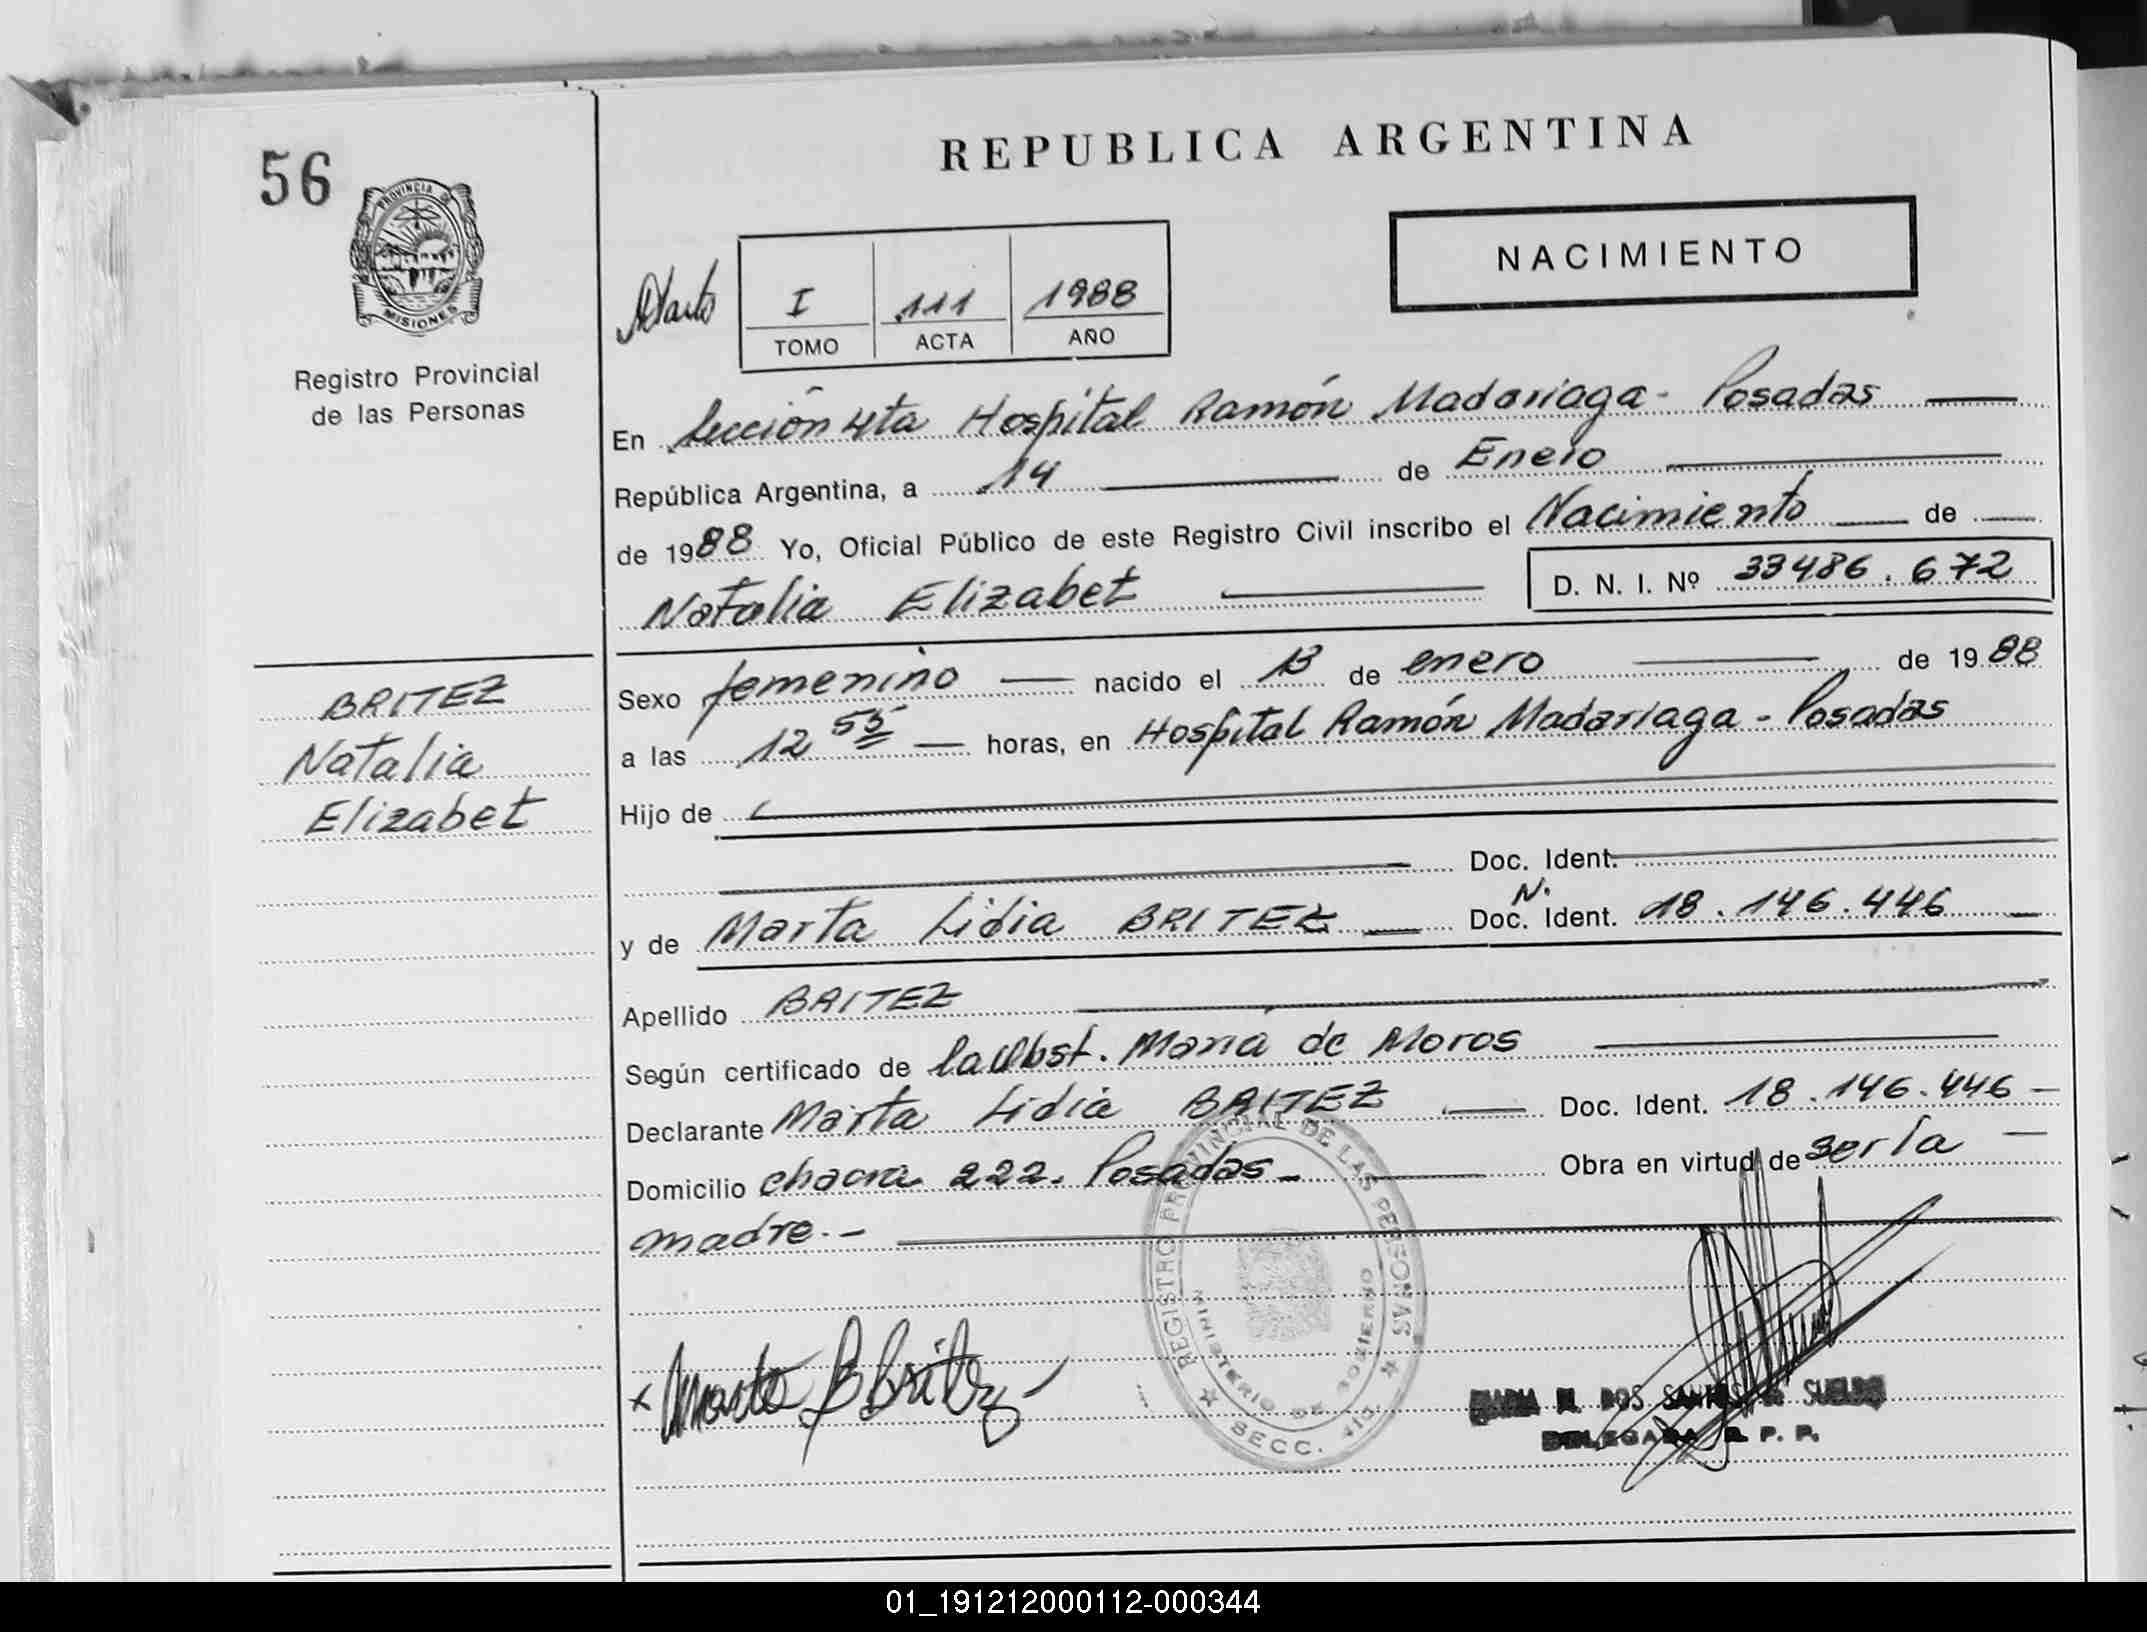 REPUBLICA ARGENTINA
56
PROVINCIA DE
MISIONES
NACIMIENTO
I 111 1988
TOMO ACTA AÑO
Registro Provincial
de las Personas
En Sección 4ta Hospital Ramón Madariaga - Posadas
República Argentina, a 14 de Enero
de 1988 Yo, Oficial Público de este Registro Civil inscribo el Nacimiento de
Natalia Elizabet D. N. I. Nº 33486.672
BRITEZ
Natalia
Elizabet
Sexo femenino nacido el 13 de enero de 1988
a las 12 55 horas, en Hospital Ramón Madariaga - Posadas
Hijo de
Doc. Ident.
N.
y de Marta Lidia BRITEZ Doc. Ident. 18.146.446
Apellido BRITEZ
Según certificado de la Obst. Maria de Moros
Declarante Marta Lidia BRITEZ Doc. Ident. 18.146.446 -
Domicilio chacra 222. Posadas - Obra en virtud de ser la -
madre. -
REGISTRO PROVINCIAL DE LAS PERSONAS
MINISTERIO DE GOBIERNO
SECC. 4ta
x Marta B Britez
MARIA DOS SANTOS de SUELDO
DELEGADA R. P. P.
01_191212000112-000344